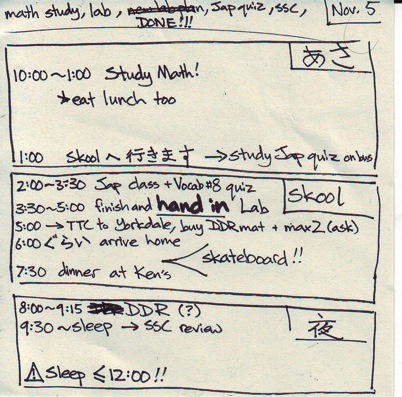 math study, lab, new lab plan, Jap quiz, SSC,
DONE!!!
Nov. 5
あさ
10:00~1:00 Study Math!
*eat lunch too
1:00 Skoolへ行きます →study Jap quiz on bus
Skool
2:00~3:30 Jap class + Vocab #8 quiz
3:30~5:00 finish and hand in Lab
5:00 → TTC to Yorkdale, buy DDR mat + max2 (ask)
6:00ぐらい arrive home
skateboard!!
7:30 dinner at Ken's
夜
8:00~9:15 DDR (?)
9:30~sleep → SSC review
⚠ Sleep ≤12:00!!